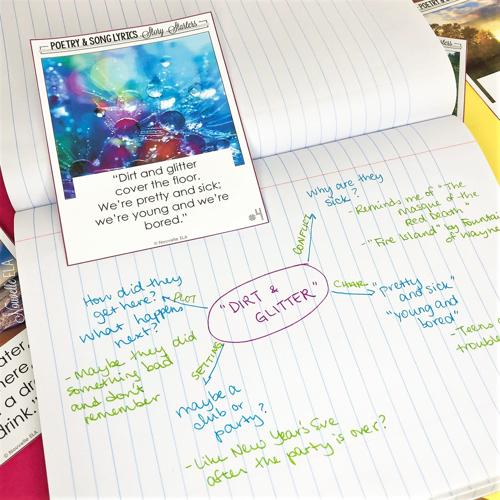 POETRY & SONG LYRICS Story Starters
"Dirt and glitter
cover the floor,
We're pretty and sick;
we're young and we're
bored."
© Nouvelle ELA
#4
Why are they
sick?
- Reminds me of "The
Masque of the
Red Death"
- "Fire Island" by Fountains
of Wayne
CONFLICT
"DIRT &
GLITTER"
CHAR.
"pretty
and sick"
"young and
bored"
- Teens
trouble
How did they
get here?
What happens
next?
PLOT
- Maybe they did
something bad
and don't
remember
SETTING
maybe a
club or
party?
- Like New Year's Eve
after the party is over?
Nouvelle ELA
here
a
drink."
© Nouvelle ELA
Starters